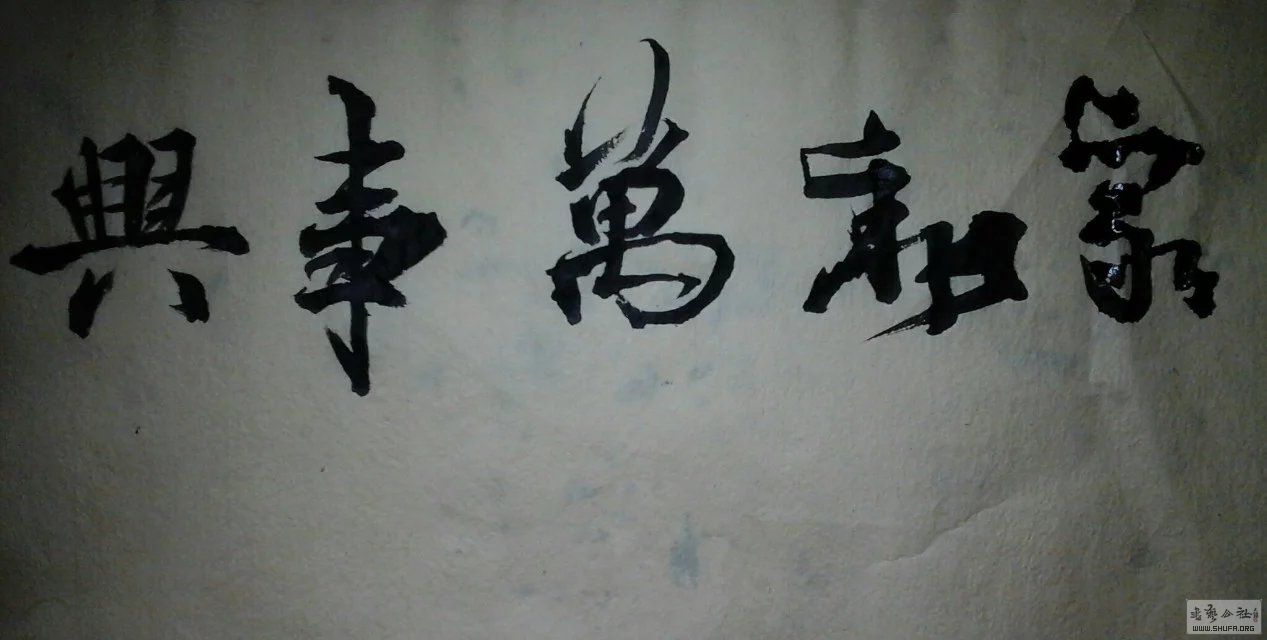 家和萬事興
书艺公社
WWW.SHUFA.ORG